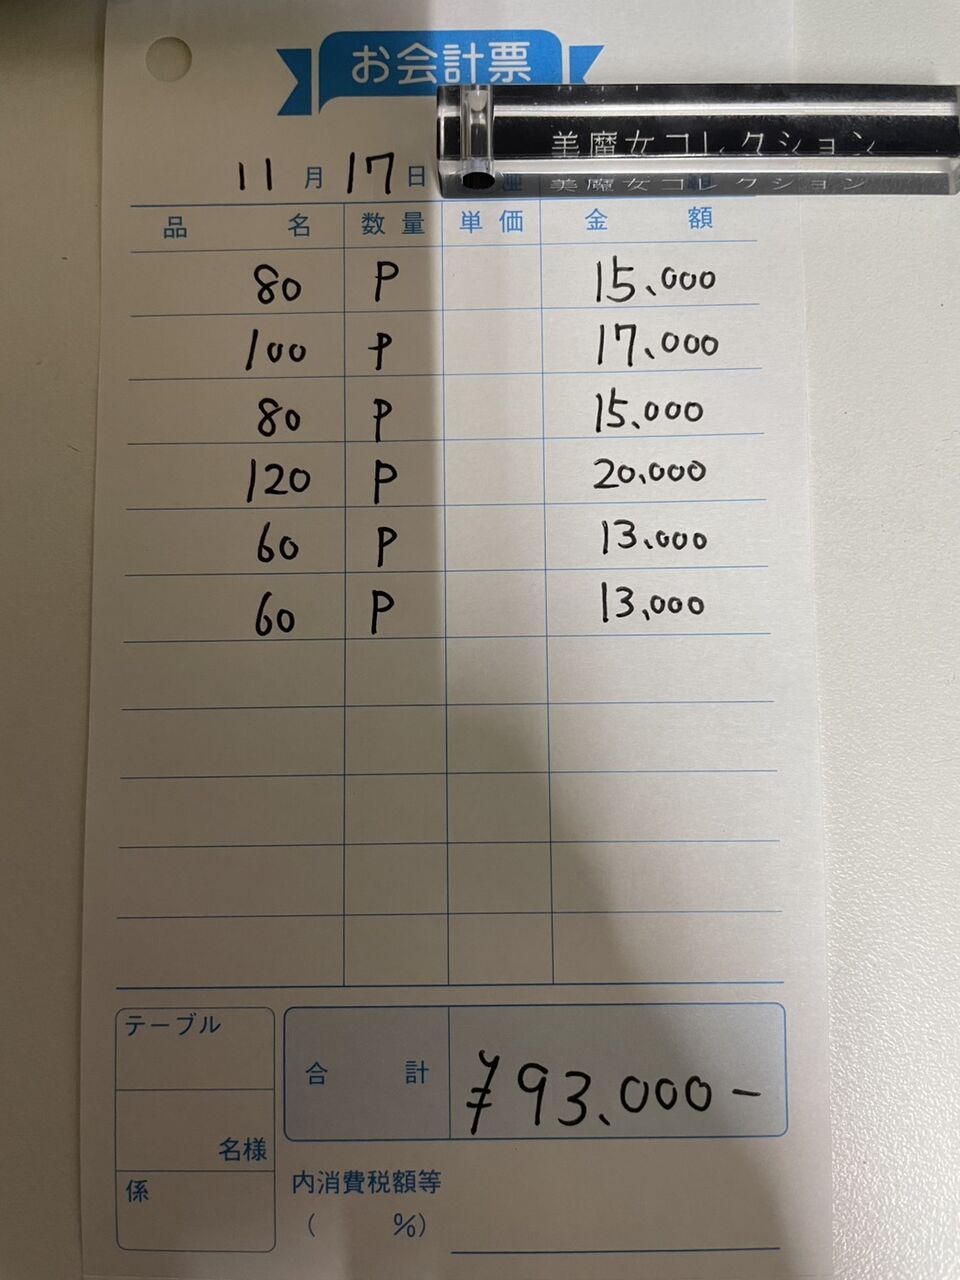 お会計票
美魔女コレクション
美魔女コレクション
11月17日
品名 数量 単価 金額
80 P 15,000
100 P 17,000
80 P 15,000
120 P 20,000
60 P 13,000
60 P 13,000
テーブル
名様
係
合計 ¥93,000-
内消費税額等
( %)